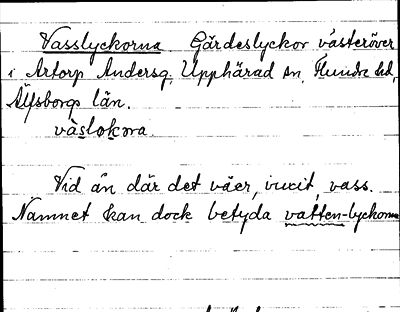 Vasslyckorna. Gärdeslyckor västeröver
i Artorp Andersg, Upphärad sn, Flundre hd,
Älfsborgs län.
väslokora.
Vid ån där det växer, vuxit, vass.
Namnet kan dock betyda vatten-lyckorna